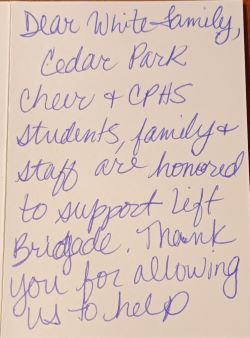 Dear White family,
Cedar Park
Cheer & CPHS
students, family &
staff are honored
to support Lift
Brigade. Thank
you for allowing
us to help